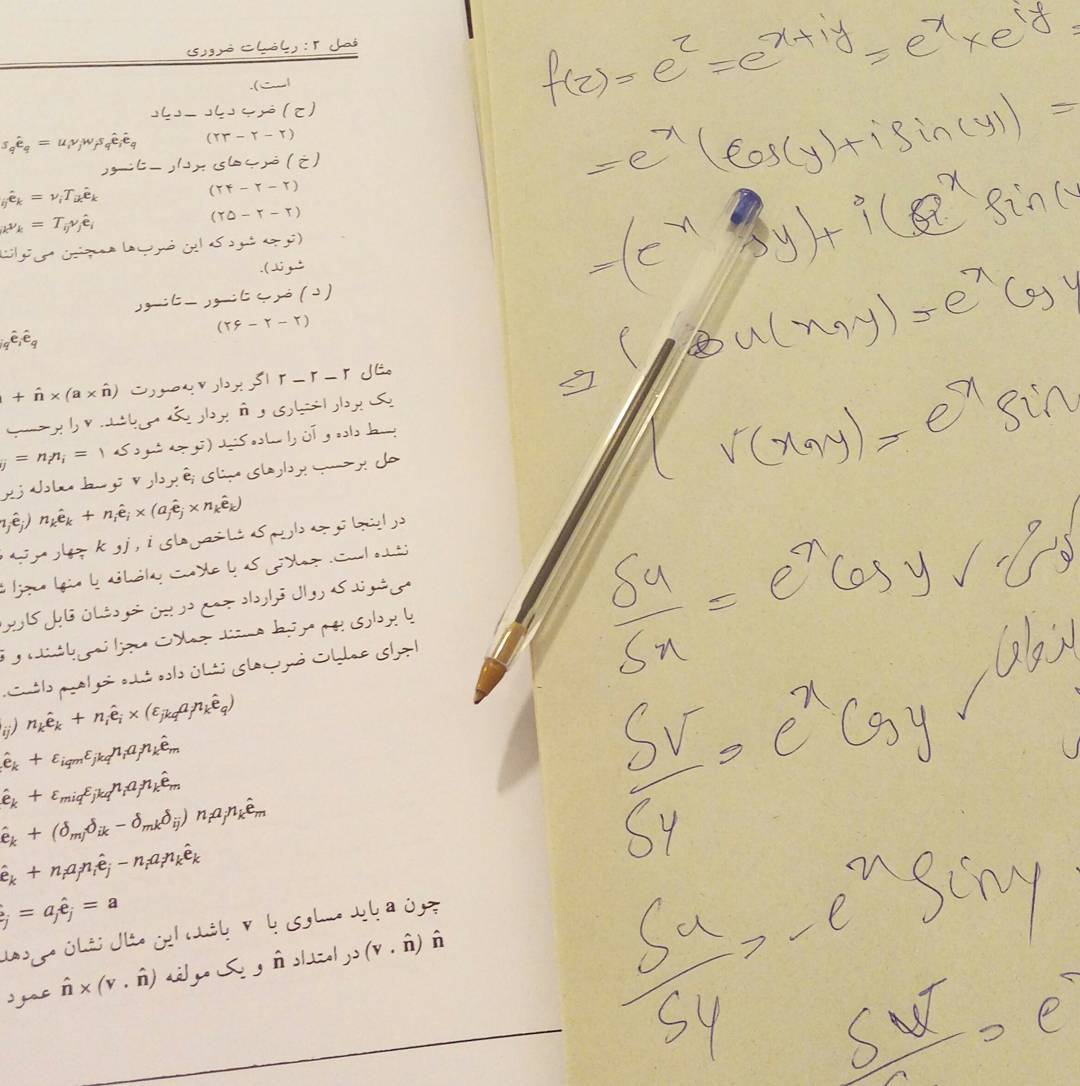 فصل ۲: ریاضیات ضروری
است).
(ح) ضرب دیاد – دیاد
s_q ê_q = u_i v_j w_j s_q ê_i ê_q (۲۳ – ۲ – ۲)
(خ) ضرب‌های بردار – تانسور
ê_k = v_i T_{ik} ê_k (۲۴ – ۲ – ۲)
v_k = T_{ij} v_j ê_i (۲۵ – ۲ – ۲)
(توجه شود که این ضرب‌ها همچنین می‌توانند
شوند).
(د) ضرب تانسور – تانسور
ê_i ê_q (۲۶ – ۲ – ۲)
مثال ۲ – ۲ – ۲ اگر بردار v به‌صورت + n̂ × (a × n̂)
یک بردار اختیاری و n̂ بردار یکه می‌باشد. v را برحسب
بسط داده و آن را ساده کنید (توجه شود که ۱ = n_i n_i =
حل برحسب بردارهای مبنای ê_i بردار v توسط معادله زیر
ê_j) n_k ê_k + n_i ê_i × (a_j ê_j × n_k ê_k)
در اینجا توجه داریم که شاخص‌های i ، j و k چهار مرتبه
نشده است. جملاتی که با علامت به‌اضافه یا منها مجزا
می‌شوند که روال قرارداد جمع در بین خودشان قابل
یا برداری بهم مرتبط هستند جملات مجزا نمی‌باشند، و
اجرای عملیات ضرب‌های نشان داده شده خواهیم داشت.
n_k ê_k + n_i ê_i × (ε_{jkq} a_j n_k ê_q)
ê_k + ε_{iqm} ε_{jkq} n_i a_j n_k ê_m
ê_k + ε_{miq} ε_{jkq} n_i a_j n_k ê_m
ê_k + (δ_{mj} δ_{ik} – δ_{mk} δ_{ij}) n_i a_j n_k ê_m
ê_k + n_i a_j n_i ê_j – n_i a_i n_k ê_k
ê_j = a_j ê_j = a
چون a باید مساوی با v باشد، این مثال نشان می‌دهد
n̂ (v . n̂) در امتداد n̂ و یک مولفه n̂ × (v . n̂) عمود
f(z) = e^z = e^{x+iy} = e^x × e^{iy} =
= e^x (cos(y) + i sin(y)) =
= (e^x y) + i(e^x sin(y
⇒ u(x,y) = e^x cos y
v(x,y) = e^x sin
δu/δx = e^x cos y ✓
δv/δy = e^x cos y ✓
δu/δy = -e^x sin y
δv = e